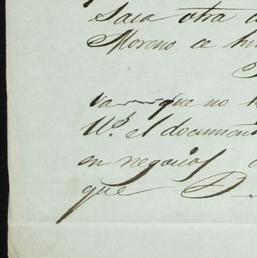 Saca otra
Moreno a
va que no
Vd. el document
en negocios
que D.